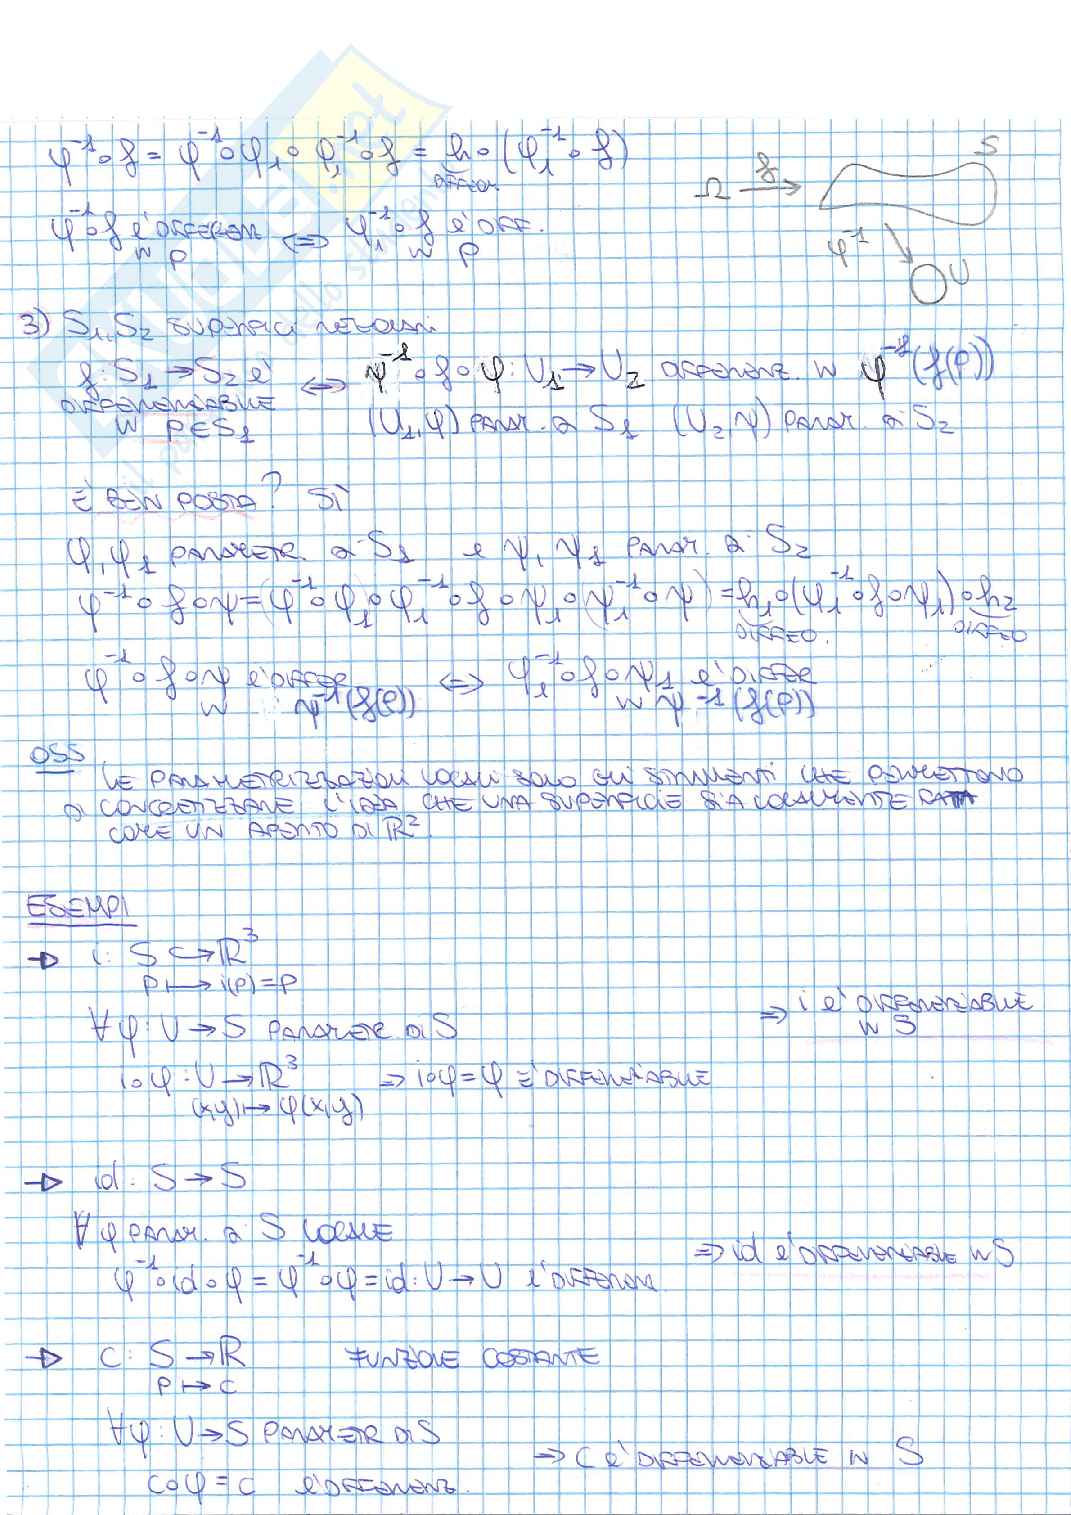 φ⁻¹∘f = φ⁻¹∘φ₁∘φ₁⁻¹∘f = h∘(φ₁⁻¹∘f)
DIFFEOM.
Ω → f S
φ⁻¹∘f È DIFFEREN. IN P ⟺ φ₁⁻¹∘f È DIFF. IN P
φ⁻¹ U
3) S₁, S₂ SUPERFICI REGOLARI
f: S₁ → S₂ È DIFFERENZIABILE IN P ∈ S₁ ⟺ ψ⁻¹∘f∘φ: U₁ → U₂ DIFFERENZ. IN φ⁻¹(f(P))
(U₁,φ) PARAM. DI S₁ (U₂,ψ) PARAM. DI S₂
È BEN POSTA? SÌ
φ, φ₁ PARAMETR. DI S₁ E ψ, ψ₁ PARAM. DI S₂
φ⁻¹∘f∘ψ = (φ⁻¹∘φ₁)∘φ₁⁻¹∘f∘ψ₁∘(ψ₁⁻¹∘ψ) = h₁∘(φ₁⁻¹∘f∘ψ₁)∘h₂
DIFFEO. DIFFEO
φ⁻¹∘f∘ψ È DIFFER. IN ψ⁻¹(f(P)) ⟺ φ₁⁻¹∘f∘ψ₁ È DIFFER IN ψ⁻¹(f(P))
OSS
LE PARAMETRIZZAZIONI LOCALI SONO GLI STRUMENTI CHE PERMETTONO
DI CONCRETIZZARE L'IDEA CHE UNA SUPERFICIE SIA LOCALMENTE FATTA
COME UN APERTO DI ℝ².
ESEMPI
→ i: S ↪ ℝ³
P ↦ i(P) = P
∀φ: U → S PARAMETR. DI S ⇒ i È DIFFERENZIABILE IN S
i∘φ: U → ℝ³ ⇒ i∘φ = φ È DIFFERENZIABILE
(x,y) ↦ φ(x,y)
→ id: S → S
∀ φ PARAM. DI S LOCALE
φ⁻¹∘id∘φ = φ⁻¹∘φ = id: U → U È DIFFEREN. ⇒ id È DIFFERENZIABILE IN S
→ C: S → ℝ FUNZIONE COSTANTE
P ↦ C
∀φ: U → S PARAMETR DI S
C∘φ = C È DIFFERENZ. ⇒ C È DIFFERENZIABILE IN S